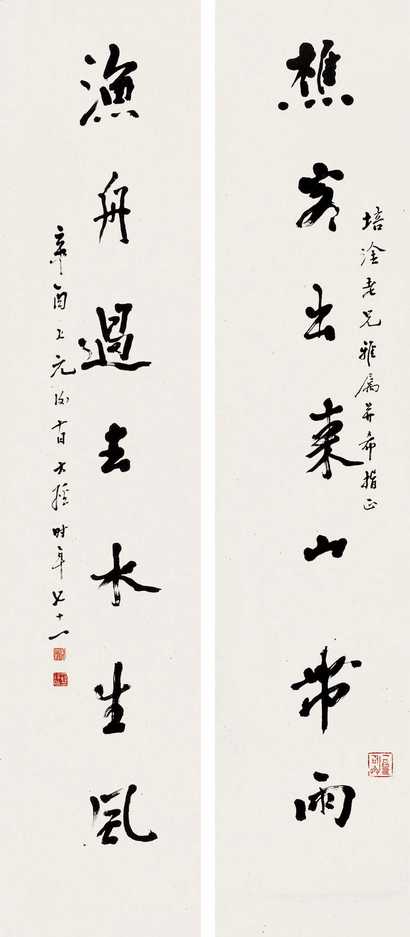 培淦老兄雅属并希指正
樵客出來山帶雨
漁舟過去水生風
辛酉上元後十日大 時年七十一